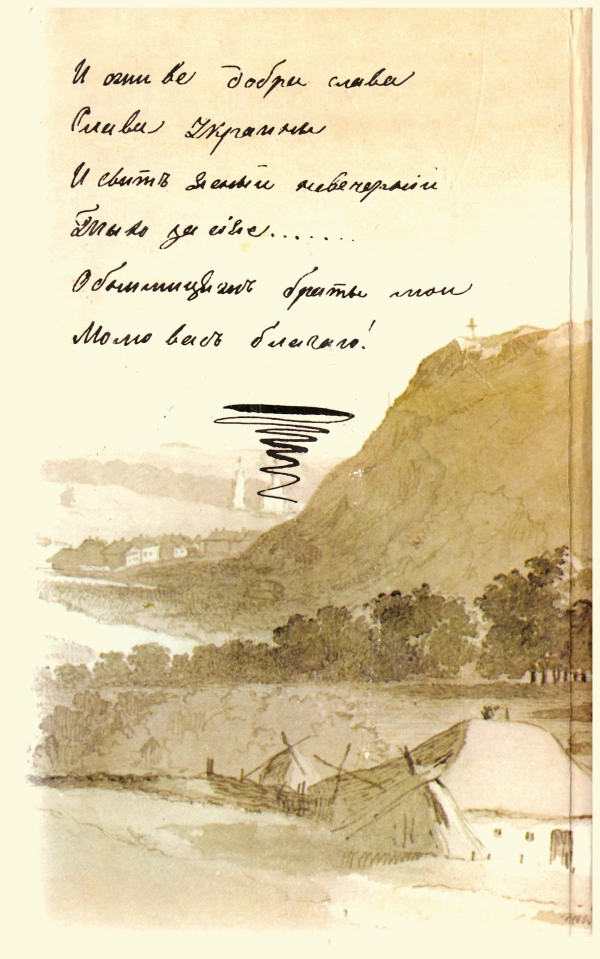 И ожи ве добра слава
Слава Украины
И свитъ ясный невечерний
Тыхо засіяе.......
браты мои
Молю васъ благаю!